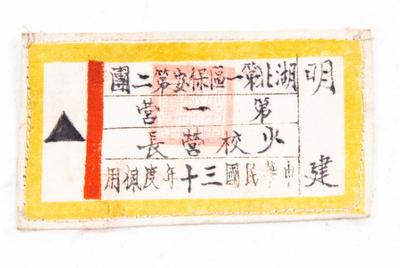 明建
湖北第一區保安第二團
第一營
少校營長
中華民國三十年度用